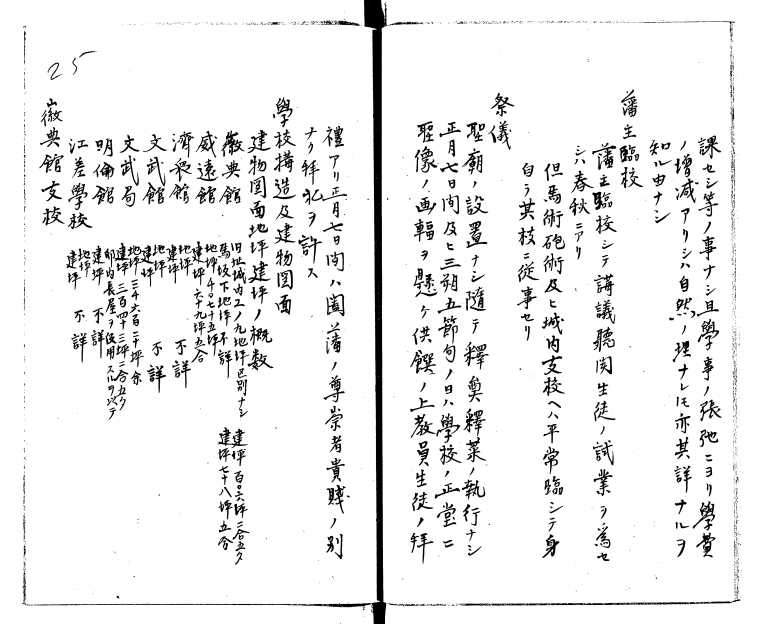 課セシ等ノ事ナシ且學事ノ張弛ニヨリ學費
ノ増減アリシハ自然ノ理ナレ𪜈亦其詳ナルヲ
知ル由ナシ
藩主臨校
藩主臨校シテ講議聽聞生徒ノ試業ヲ為セ
シハ春秋ニアリ
但馬術砲術及ヒ城内支校ヘハ平常臨シテ身
自ラ其技ニ從事セリ
祭儀
聖廟ノ設置ナシ隨テ釋奠釋菜ノ執行ナシ
正月七日間及ヒ三朔五節句ノ日ハ學校ノ正堂ニ
聖像ノ画輻ヲ懸ケ供饌ノ上教員生徒ノ拜
25
禮アリ正月七日間ハ闔藩ノ尊崇者貴賤ノ別
ナク拜礼ヲ許ス
學校構造及建物図面
建物図面地坪建坪ノ概数
徽典館 旧址城内工ノ九地坪区別ナシ 建坪百〇六坪二合五夕
馬坂下地坪不詳 建坪七十八坪五合
威遠館 地坪千〇七十五坪
建坪六十九坪五合
濟衆館 地坪 建坪 不詳
文武館 地坪 建坪 不詳
文武局 地坪三千六百二十坪余
建坪三百四十三坪二合五夕
明倫館 邸内長屋ヲ使用スルヲ以テ
建坪不詳
江差學校 地坪 建坪 不詳
徽典館支校